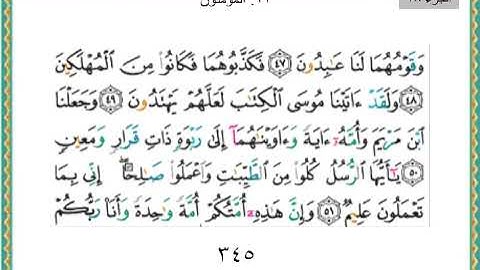 ٢٣. المؤمنون
وَقَوْمُهُمَا لَنَا عَٰبِدُونَ ﴿٤٧﴾ فَكَذَّبُوهُمَا فَكَانُوا۟ مِنَ ٱلْمُهْلَكِينَ
﴿٤٨﴾ وَلَقَدْ ءَاتَيْنَا مُوسَى ٱلْكِتَٰبَ لَعَلَّهُمْ يَهْتَدُونَ ﴿٤٩﴾ وَجَعَلْنَا
ٱبْنَ مَرْيَمَ وَأُمَّهُۥٓ ءَايَةً وَءَاوَيْنَٰهُمَآ إِلَىٰ رَبْوَةٍ ذَاتِ قَرَارٍ وَمَعِينٍ
﴿٥٠﴾ يَٰٓأَيُّهَا ٱلرُّسُلُ كُلُوا۟ مِنَ ٱلطَّيِّبَٰتِ وَٱعْمَلُوا۟ صَٰلِحًا ۖ إِنِّى بِمَا
تَعْمَلُونَ عَلِيمٌ ﴿٥١﴾ وَإِنَّ هَٰذِهِۦٓ أُمَّتُكُمْ أُمَّةً وَٰحِدَةً وَأَنَا۠ رَبُّكُمْ
٣٤٥